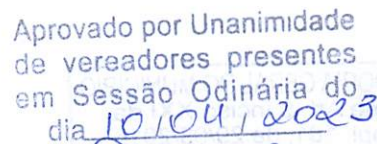 Aprovado por Unanimidade
de vereadores presentes
em Sessão Odinária do
dia 10/04/2023